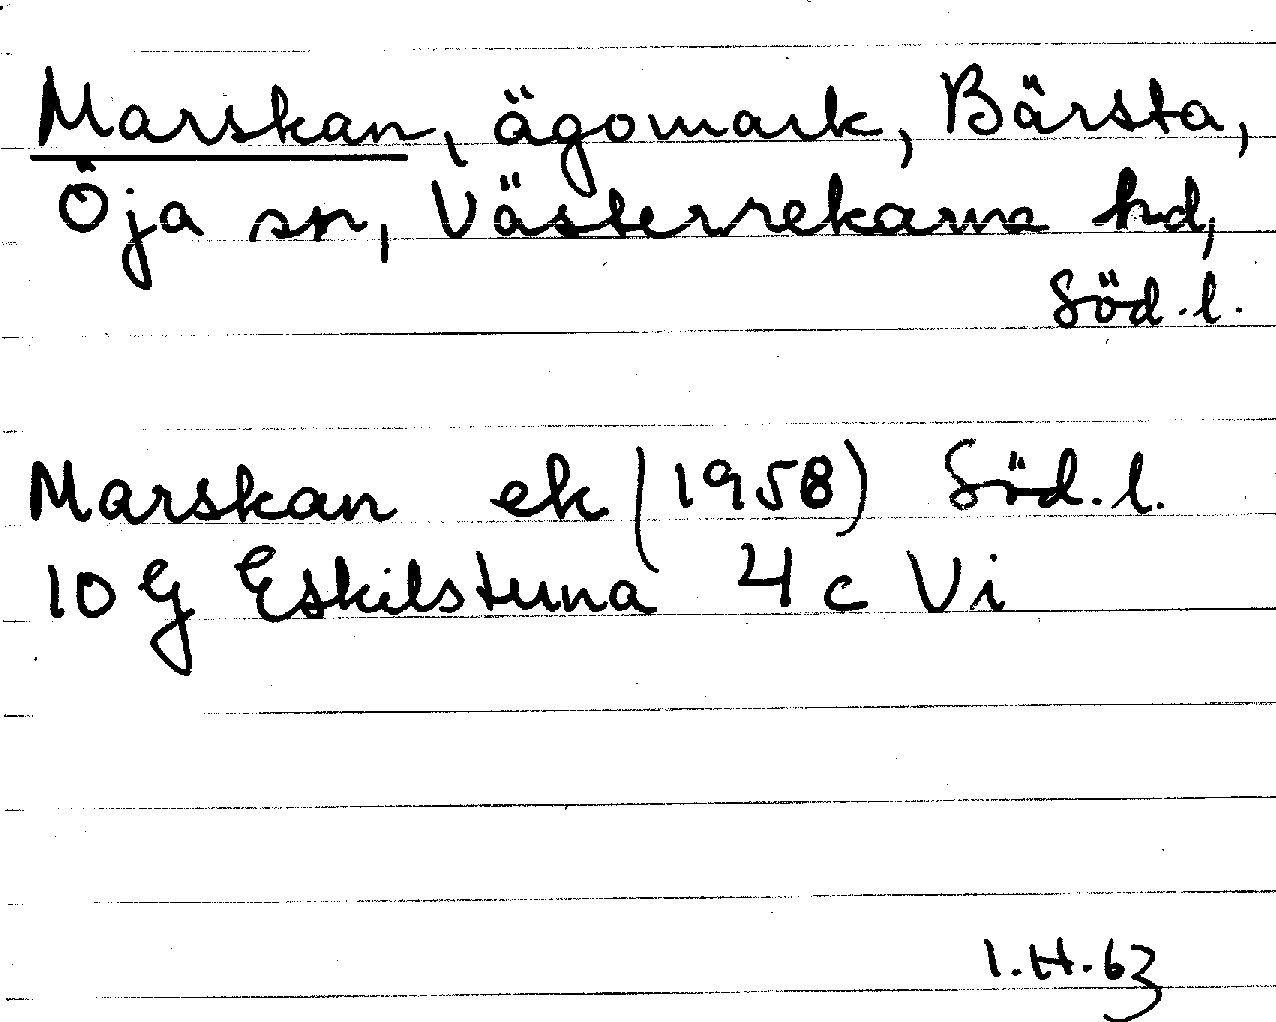 Marskan, ägomark, Bärsta,
Öja sn, Västerrekarne hd,
Söd.l.
Marskan ek (1958) Söd.l.
10 G Eskilstuna 4 c Vi
I.H.63